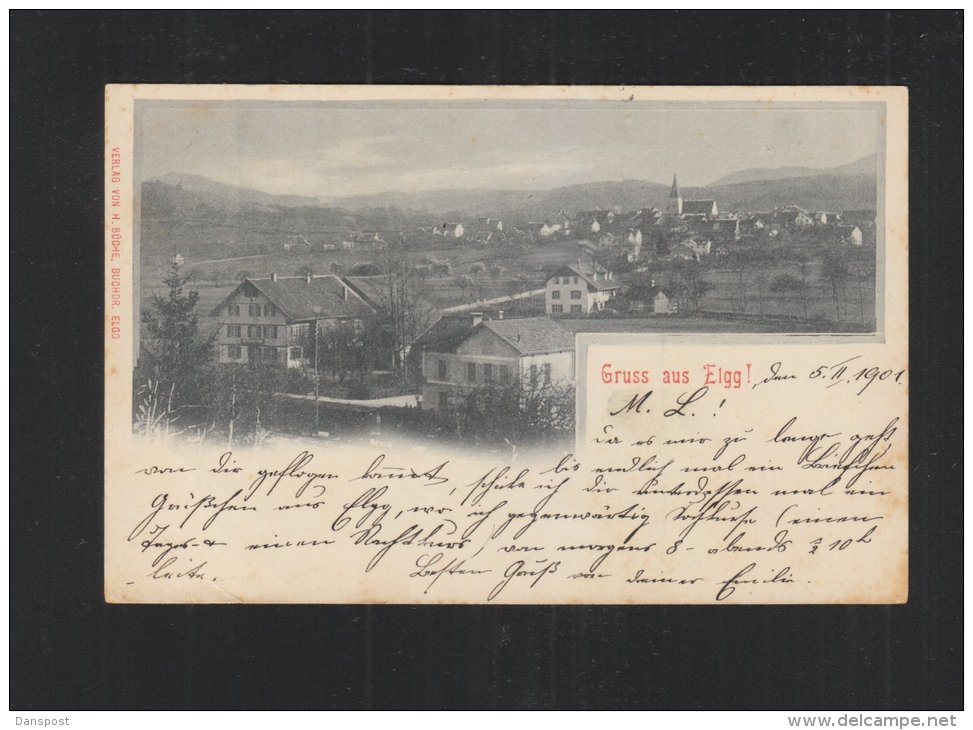 VERLAG VON H. BÜCHE, BUCHDR. ELGG
Gruss aus Elgg!, den 5. II. 1901.
M. L.!
Da es mir zu lange geht,
bis endlich mal ein Briefchen
von dir geflogen kommt, schicke ich dir unterdessen mal ein
Grüßchen aus Elgg, wo ich gegenwärtig Kochkurse (einen
Tages- & einen Nachtkurs, von morgens 8 - abends ½ 10 h
leite.
Besten Gruß von deiner Emilie.
Danspost
www.delcampe.net